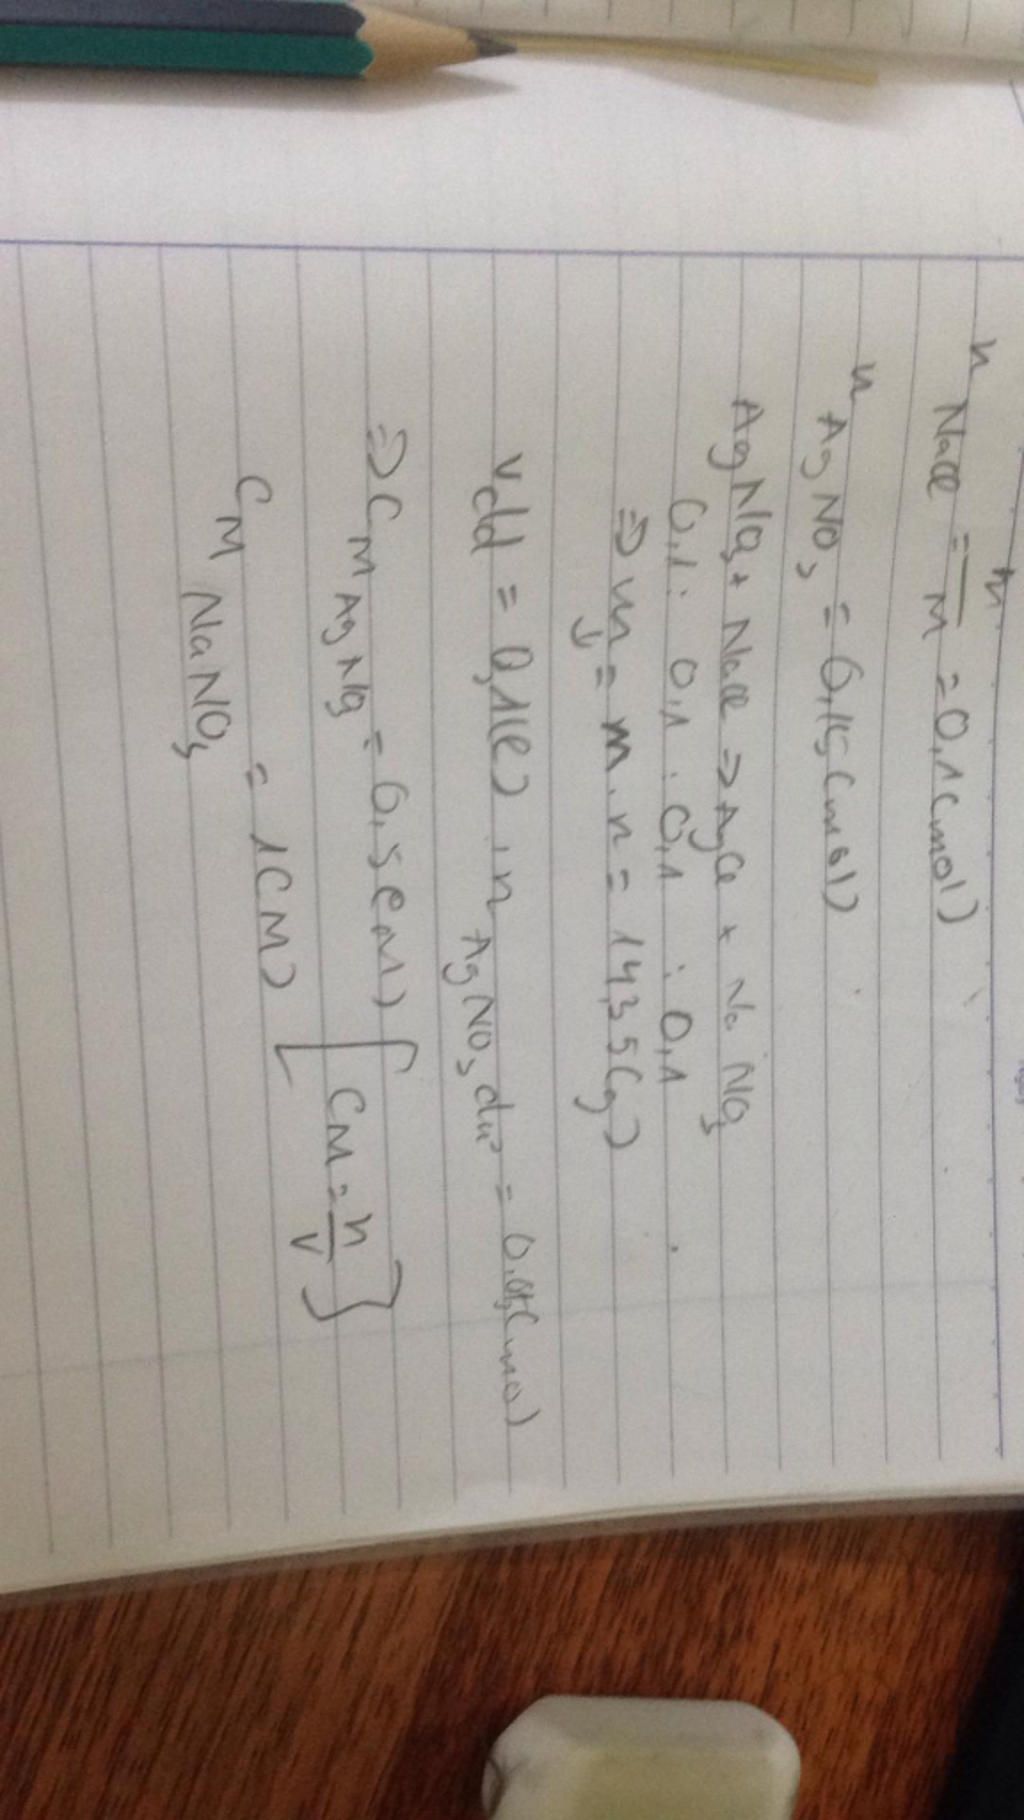 n NaCl = m/M = 0,1 (mol)
n AgNO3 = 0,15 (mol)
AgNO3 + NaCl => AgCl + NaNO3
0,1 : 0,1 : 0,1 : 0,1
=> m↓ = m . n = 14,35 (g)
Vdd = 0,1 (l) , n AgNO3 dư = 0,05 (mol)
=> CM AgNO3 = 0,5 (M) [ CM = n/V ]
CM NaNO3 = 1 (M)